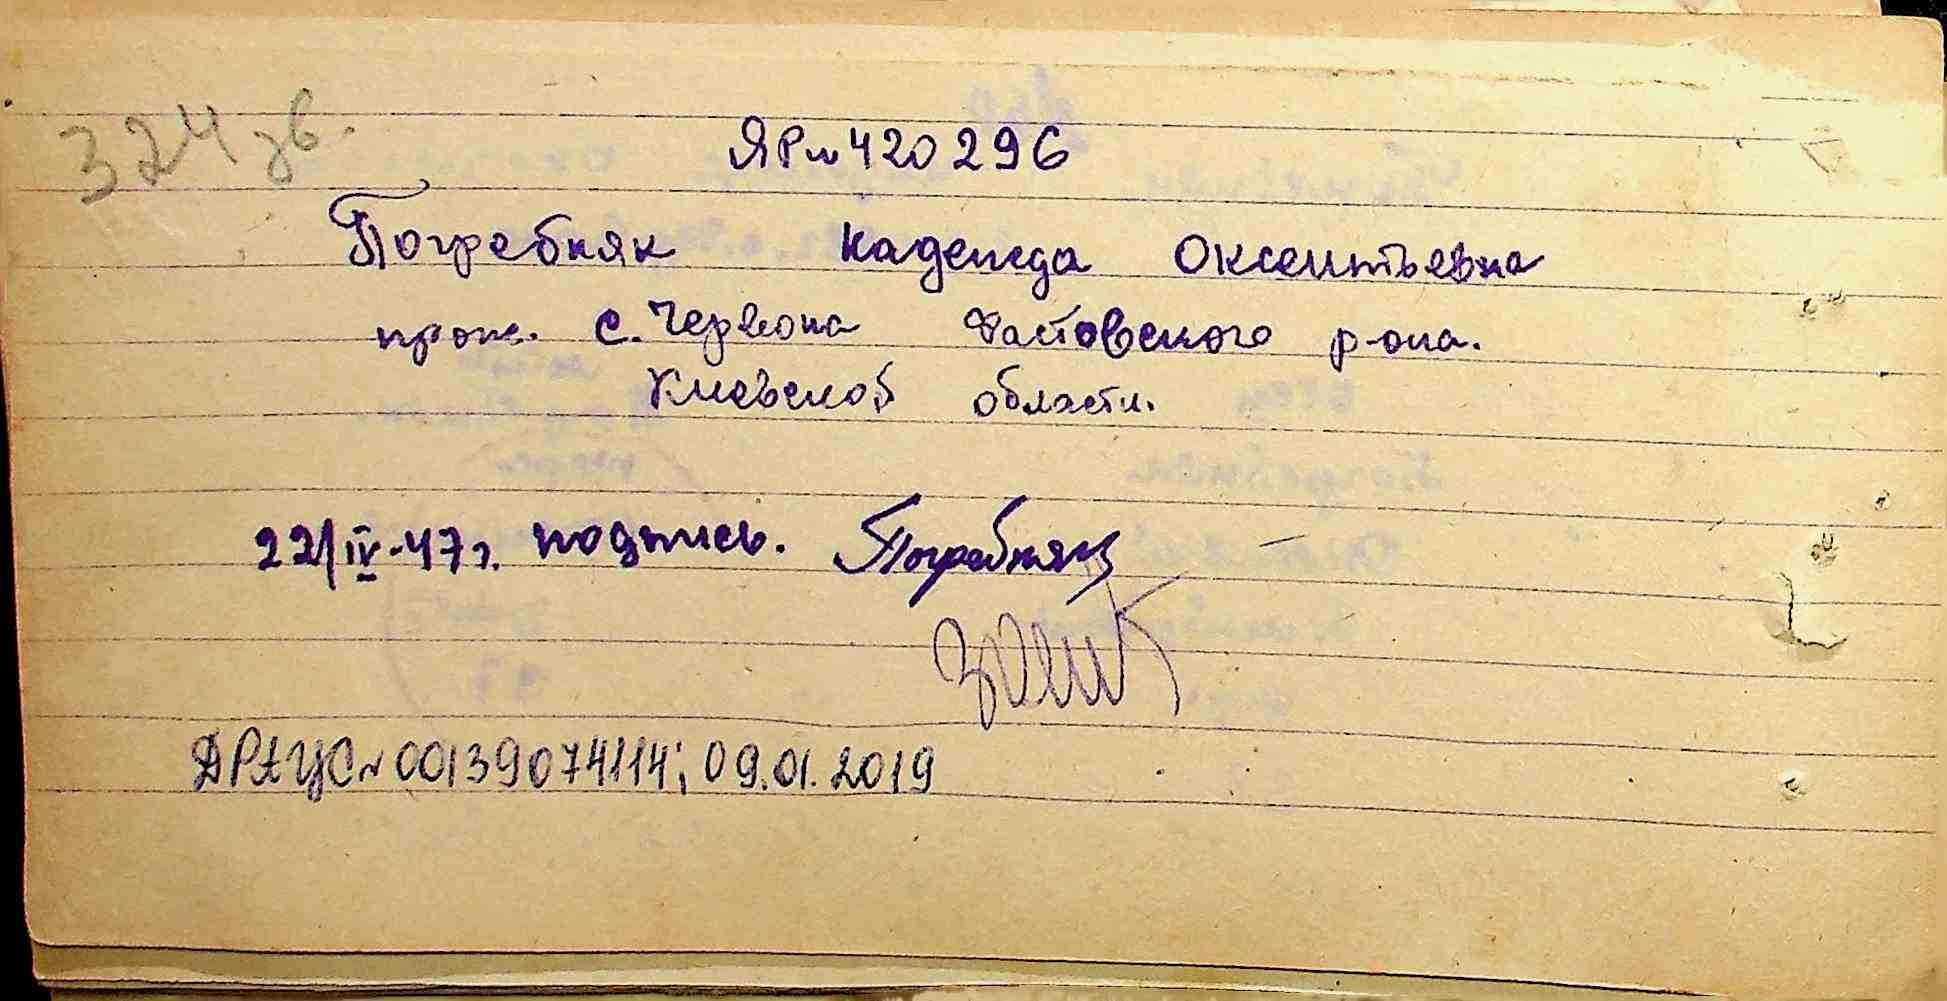 324 зв.
ЯР № 420296
Погребняк Надежда Оксентьевна
прож. с. Червона Фастовского р-она.
Киевской области.
22/IV-47 г. подпись. Погребняк
ДРАЦС № 00139074114; 09.01.2019